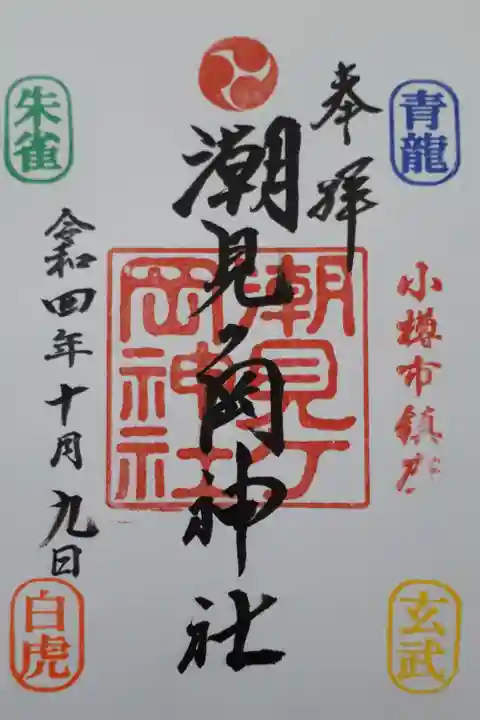 奉拝
青龍
小樽市鎮
玄武
潮見ヶ岡神社
潮見丁
岡神社
朱雀
令和四年十月九日
白虎